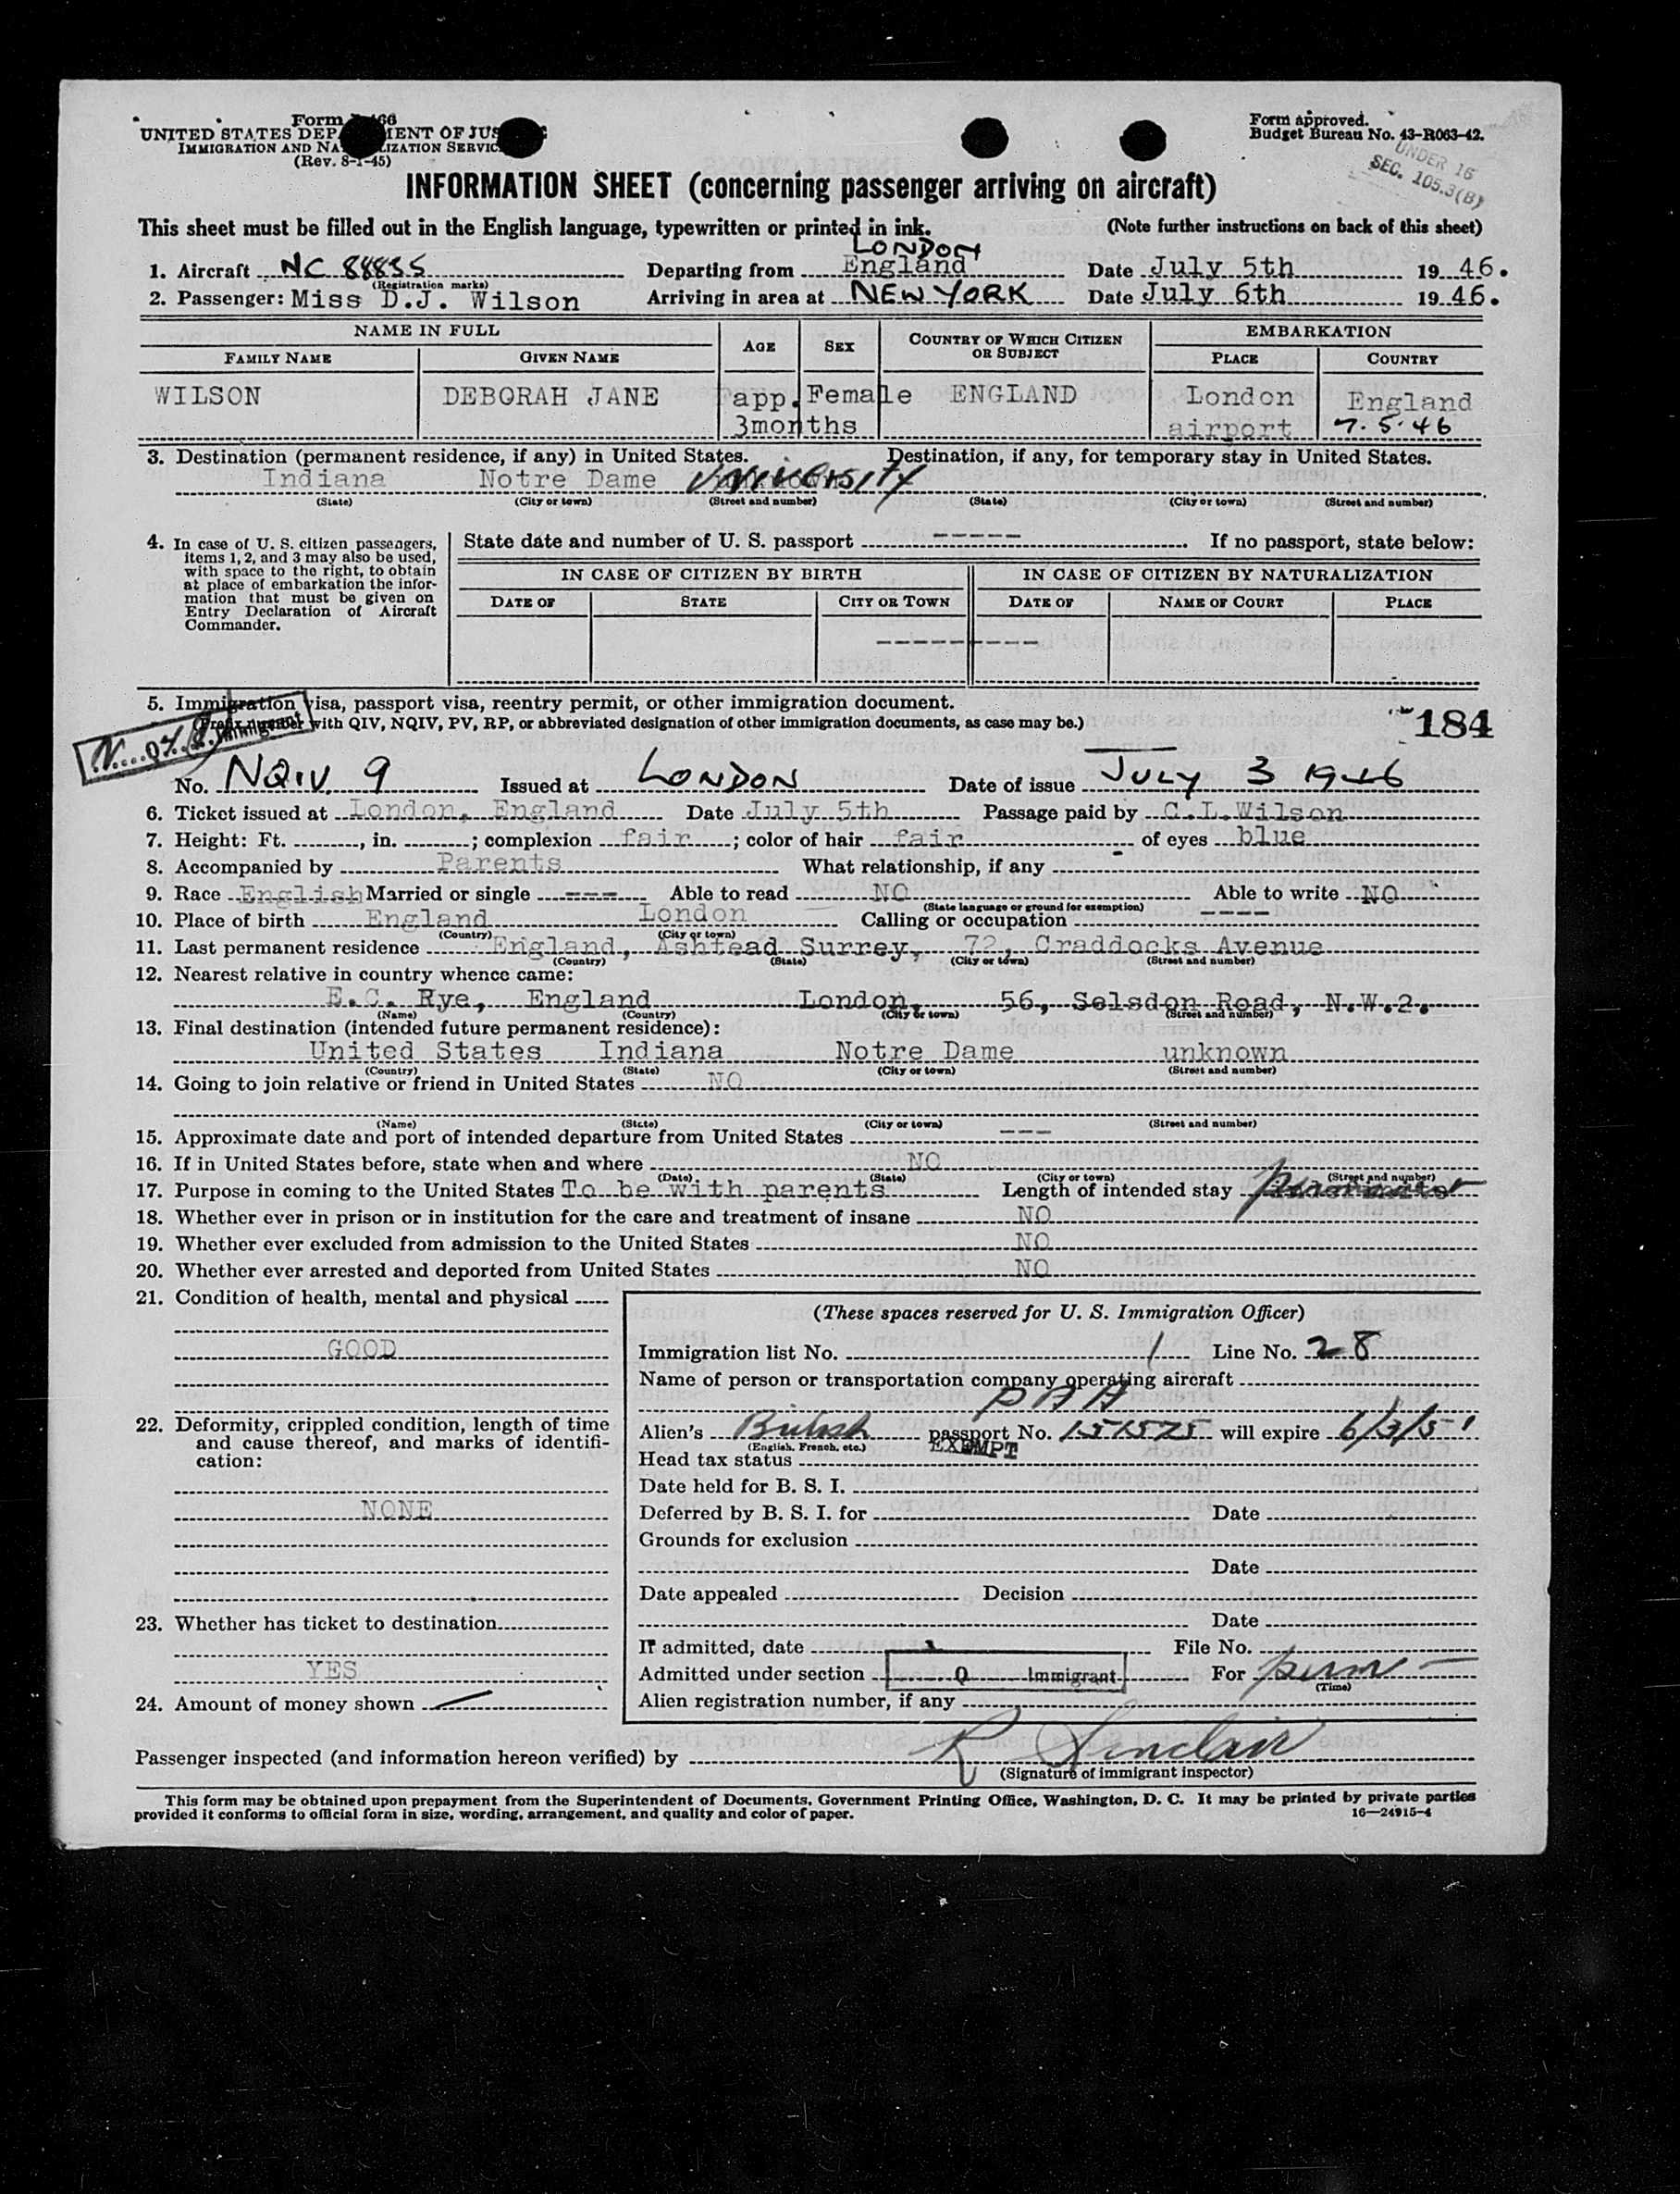 Form 466
UNITED STATES DEPARTMENT OF JUSTICE
IMMIGRATION AND NATURALIZATION SERVICE
(Rev. 8-1-45)
Form approved.
Budget Bureau No. 43-R063-42.
UNDER 16
SEC. 105.3(B)
INFORMATION SHEET (concerning passenger arriving on aircraft)
This sheet must be filled out in the English language, typewritten or printed in ink. (Note further instructions on back of this sheet)
LONDON
1. Aircraft NC 88835 Departing from England Date July 5th 19 46.
(Registration marks)
2. Passenger: Miss D.J. Wilson Arriving in area at NEW YORK Date July 6th 19 46.
NAME IN FULL AGE SEX COUNTRY OF WHICH CITIZEN OR SUBJECT EMBARKATION
FAMILY NAME GIVEN NAME PLACE COUNTRY
WILSON DEBORAH JANE app. Female ENGLAND London England
3months airport 7.5.46
3. Destination (permanent residence, if any) in United States. Destination, if any, for temporary stay in United States.
Indiana Notre Dame UNIVERSITY
(State) (City or town) (Street and number) (State) (City or town) (Street and number)
4. In case of U. S. citizen passengers, items 1, 2, and 3 may also be used, with space to the right, to obtain at place of embarkation the information that must be given on Entry Declaration of Aircraft Commander.
State date and number of U. S. passport ----- If no passport, state below:
IN CASE OF CITIZEN BY BIRTH IN CASE OF CITIZEN BY NATURALIZATION
DATE OF STATE CITY OR TOWN DATE OF NAME OF COURT PLACE
----------
5. Immigration visa, passport visa, reentry permit, or other immigration document.
(Prefix number with QIV, NQIV, PV, RP, or abbreviated designation of other immigration documents, as case may be.)
184
No. NQIV 9 Issued at LONDON Date of issue JULY 3 1946
6. Ticket issued at London, England Date July 5th Passage paid by C.L.Wilson
7. Height: Ft. , in. ; complexion fair ; color of hair fair of eyes blue
8. Accompanied by Parents What relationship, if any
9. Race English Married or single --- Able to read NO Able to write NO
(State language or ground for exemption)
10. Place of birth England London Calling or occupation ----
(Country) (City or town)
11. Last permanent residence England, Ashtead Surrey, 72, Craddocks Avenue
(Country) (State) (City or town) (Street and number)
12. Nearest relative in country whence came:
E.C. Rye, England London, 56, Selsdon Road, N.W.2.
(Name) (Country) (City or town) (Street and number)
13. Final destination (intended future permanent residence):
United States Indiana Notre Dame unknown
(Country) (State) (City or town) (Street and number)
14. Going to join relative or friend in United States NO
(Name) (State) (City or town) (Street and number)
15. Approximate date and port of intended departure from United States ---
16. If in United States before, state when and where NO
(Date) (State) (City or town) (Street and number)
17. Purpose in coming to the United States To be with parents Length of intended stay permanent
18. Whether ever in prison or in institution for the care and treatment of insane NO
19. Whether ever excluded from admission to the United States NO
20. Whether ever arrested and deported from United States NO
21. Condition of health, mental and physical
GOOD
22. Deformity, crippled condition, length of time and cause thereof, and marks of identification:
NONE
23. Whether has ticket to destination
YES
24. Amount of money shown
(These spaces reserved for U. S. Immigration Officer)
Immigration list No. 1 Line No. 28
Name of person or transportation company operating aircraft
PAA
Alien's British passport No. 151575 will expire 6/3/51
(English, French, etc.)
Head tax status EXEMPT
Date held for B. S. I.
Deferred by B. S. I. for Date
Grounds for exclusion
Date
Date appealed Decision
Date
If admitted, date File No.
Admitted under section Q Immigrant For perm
(Time)
Alien registration number, if any
Passenger inspected (and information hereon verified) by R Sinclair
(Signature of immigrant inspector)
This form may be obtained upon prepayment from the Superintendent of Documents, Government Printing Office, Washington, D. C. It may be printed by private parties
provided it conforms to official form in size, wording, arrangement, and quality and color of paper. 16—24915-4